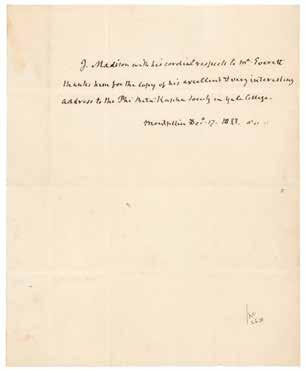 J. Madison with his cordial respects to Mr Everett
thanks him for the copy of his excellent & very interesting
address to the Phi Beta Kappa Society in Yale College.
Montpellier Decr. 17. 1833.